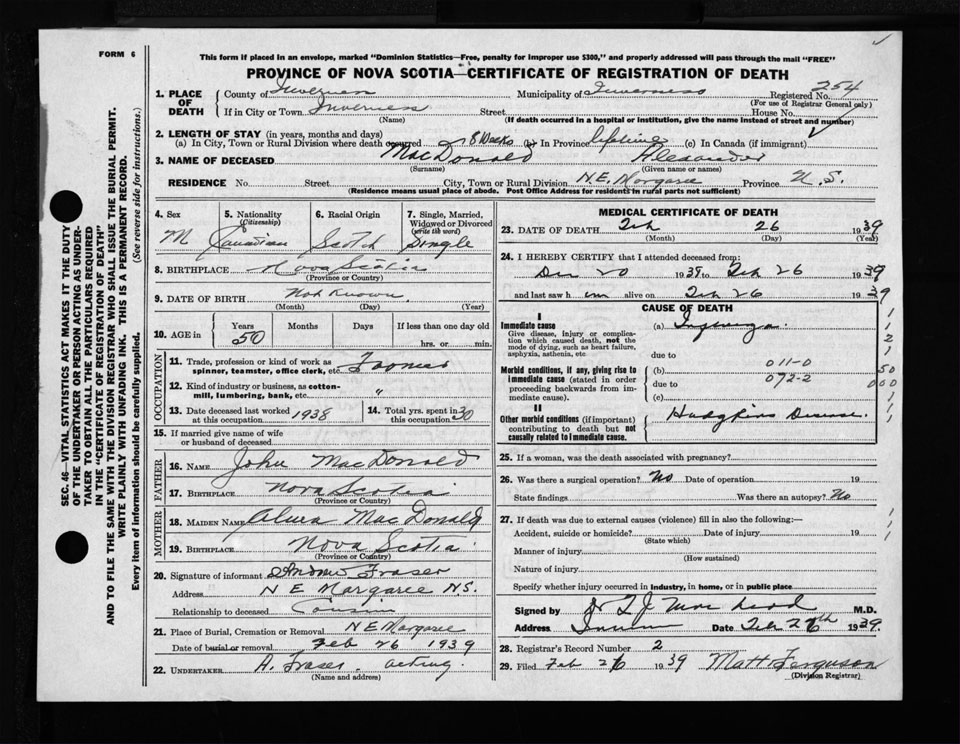 FORM 6
This form if placed in an envelope, marked "Dominion Statistics—Free, penalty for improper use $300," and properly addressed will pass through the mail "FREE"
PROVINCE OF NOVA SCOTIA—CERTIFICATE OF REGISTRATION OF DEATH
SEC. 46—VITAL STATISTICS ACT MAKES IT THE DUTY
OF THE UNDERTAKER OR PERSON ACTING AS UNDER-
TAKER TO OBTAIN ALL THE PARTICULARS REQUIRED
IN THE "CERTIFICATE OF REGISTRATION OF DEATH"
AND TO FILE THE SAME WITH THE DIVISION REGISTRAR WHO SHALL ISSUE THE BURIAL PERMIT.
WRITE PLAINLY WITH UNFADING INK. THIS IS A PERMANENT RECORD.
Every item of information should be carefully supplied. (See reverse side for instructions.)
1. PLACE OF DEATH County of Inverness Municipality of Inverness Registered No. 254
(For use of Registrar General only)
If in City or Town Inverness Street House No.
(Name) (If death occurred in a hospital or institution, give the name instead of street and number)
2. LENGTH OF STAY (in years, months and days)
(a) In City, Town or Rural Division where death occurred 8 Weeks (b) In Province lifetime (c) In Canada (if immigrant)
3. NAME OF DECEASED MacDonald Alexander
(Surname) (Given name or names)
RESIDENCE No. Street City, Town or Rural Division N.E. Margaree Province N.S.
(Residence means usual place of abode. Post Office Address for residents in rural parts not sufficient)
4. Sex M
5. Nationality (Citizenship) Canadian
6. Racial Origin Scotch
7. Single, Married, Widowed or Divorced (write the word) Single
8. BIRTHPLACE Nova Scotia
(Province or Country)
9. DATE OF BIRTH Not Known
(Month) (Day) (Year)
10. AGE in Years 50 Months Days If less than one day old
hrs. or min.
OCCUPATION
11. Trade, profession or kind of work as spinner, teamster, office clerk, etc. Farmer
12. Kind of industry or business, as cotton-mill, lumbering, bank, etc. "
13. Date deceased last worked at this occupation 1938
14. Total yrs. spent in this occupation 30
15. If married give name of wife or husband of deceased
FATHER
16. NAME John MacDonald
17. BIRTHPLACE Nova Scotia
(Province or Country)
MOTHER
18. MAIDEN NAME MacDonald
19. BIRTHPLACE Nova Scotia
(Province or Country)
20. Signature of informant Andrew Fraser
Address N E Margaree N.S.
Relationship to deceased Cousin
21. Place of Burial, Cremation or Removal N E Margaree
Date of burial or removal Feb 26 1939
22. UNDERTAKER A. Fraser - acting.
(Name and address)
MEDICAL CERTIFICATE OF DEATH
23. DATE OF DEATH Feb 26 1939
(Month) (Day) (Year)
24. I HEREBY CERTIFY that I attended deceased from:
Dec 20 1938 to Feb 26 1939
and last saw him alive on Feb 26 1939
CAUSE OF DEATH
I
Immediate cause (a) Influenza.
Give disease, injury or complication which caused death, not the mode of dying, such as heart failure, asphyxia, asthenia, etc
due to
Morbid conditions, if any, giving rise to immediate cause (stated in order proceeding backwards from immediate cause).
(b) 011-0
due to 072-2
(c)
II
Other morbid conditions (if important) contributing to death but not causally related to immediate cause. Hodgkins Disease.
1
1
2
1
50
000
25. If a woman, was the death associated with pregnancy?
26. Was there a surgical operation? No Date of operation 19
State findings Was there an autopsy? No
27. If death was due to external causes (violence) fill in also the following:—
Accident, suicide or homicide? Date of injury 19
(State which)
Manner of injury
(How sustained)
Nature of injury
Specify whether injury occurred in industry, in home, or in public place
Signed by M.D.
Address Date Feb 26th 1939
28. Registrar's Record Number 2
29. Filed Feb 26 1939 Matt Ferguson
(Division Registrar)